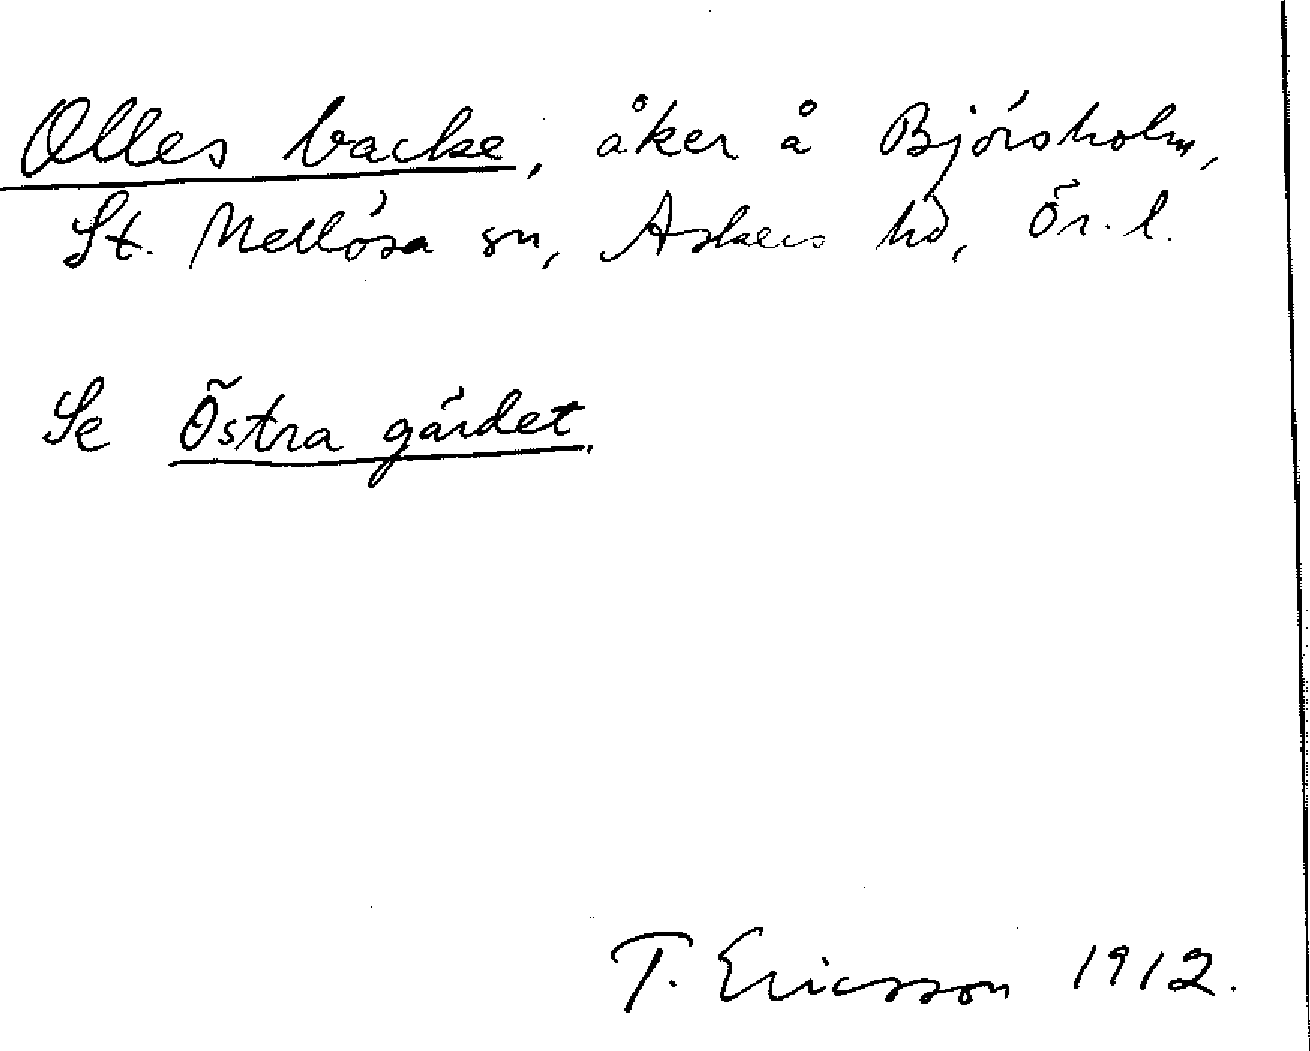 Olles backe, åker å Björsholm,
St. Mellösa sn, Askers hd, Ör. l.
Se Östra gärdet.
T. Ericsson 1912.